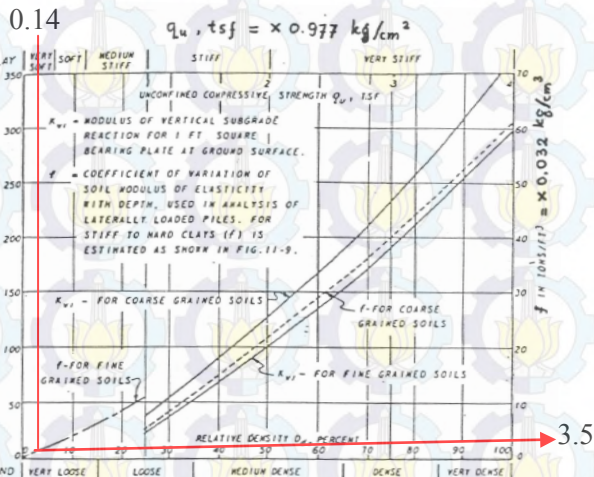 0.14
qu, tsf = × 0.977 kg/cm²
AY VERY SOFT SOFT MEDIUM STIFF STIFF VERY STIFF
350 1 2 3 70
UNCONFINED COMPRESSIVE STRENGTH qu, TSF
300 60
Kv1 - MODULUS OF VERTICAL SUBGRADE
REACTION FOR 1 FT SQUARE
BEARING PLATE AT GROUND SURFACE.
250 50
f = COEFFICIENT OF VARIATION OF
SOIL MODULUS OF ELASTICITY
WITH DEPTH, USED IN ANALYSIS OF
LATERALLY LOADED PILES. FOR
200 40
STIFF TO HARD CLAYS (f) IS
ESTIMATED AS SHOWN IN FIG. 11-9.
f IN (TONS/FT³) = × 0.032 kg/cm³
150 30
Kv1 - FOR COARSE GRAINED SOILS
f-FOR COARSE
GRAINED SOILS
100 20
f-FOR FINE
GRAINED SOILS
Kv1 - FOR FINE GRAINED SOILS
50 10
RELATIVE DENSITY Dd, PERCENT
3.5
0 20 40 60 80 100 0
ND VERY LOOSE LOOSE MEDIUM DENSE DENSE VERY DENSE